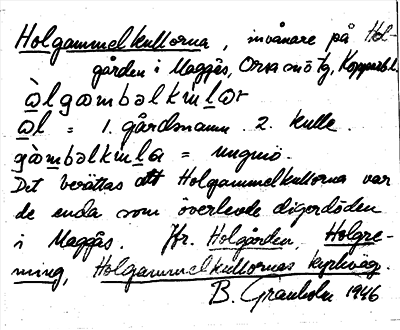 Holgammelkullorna, invånare på Hol-
gården i Maggås, Orsa snö tg, Kopparb.l.
ὼlgambəlkùlar
ωl = 1. gårdsnamn. 2. kulle.
gàmbəlkùla = ungmö.
Det berättas att Holgammelkullorna var
de enda som överlevde digerdöden
i Maggås. Jfr. Holgården, Holgre-
ning, Holgammelkullornas kyrkväg.
B. Granholm 1946